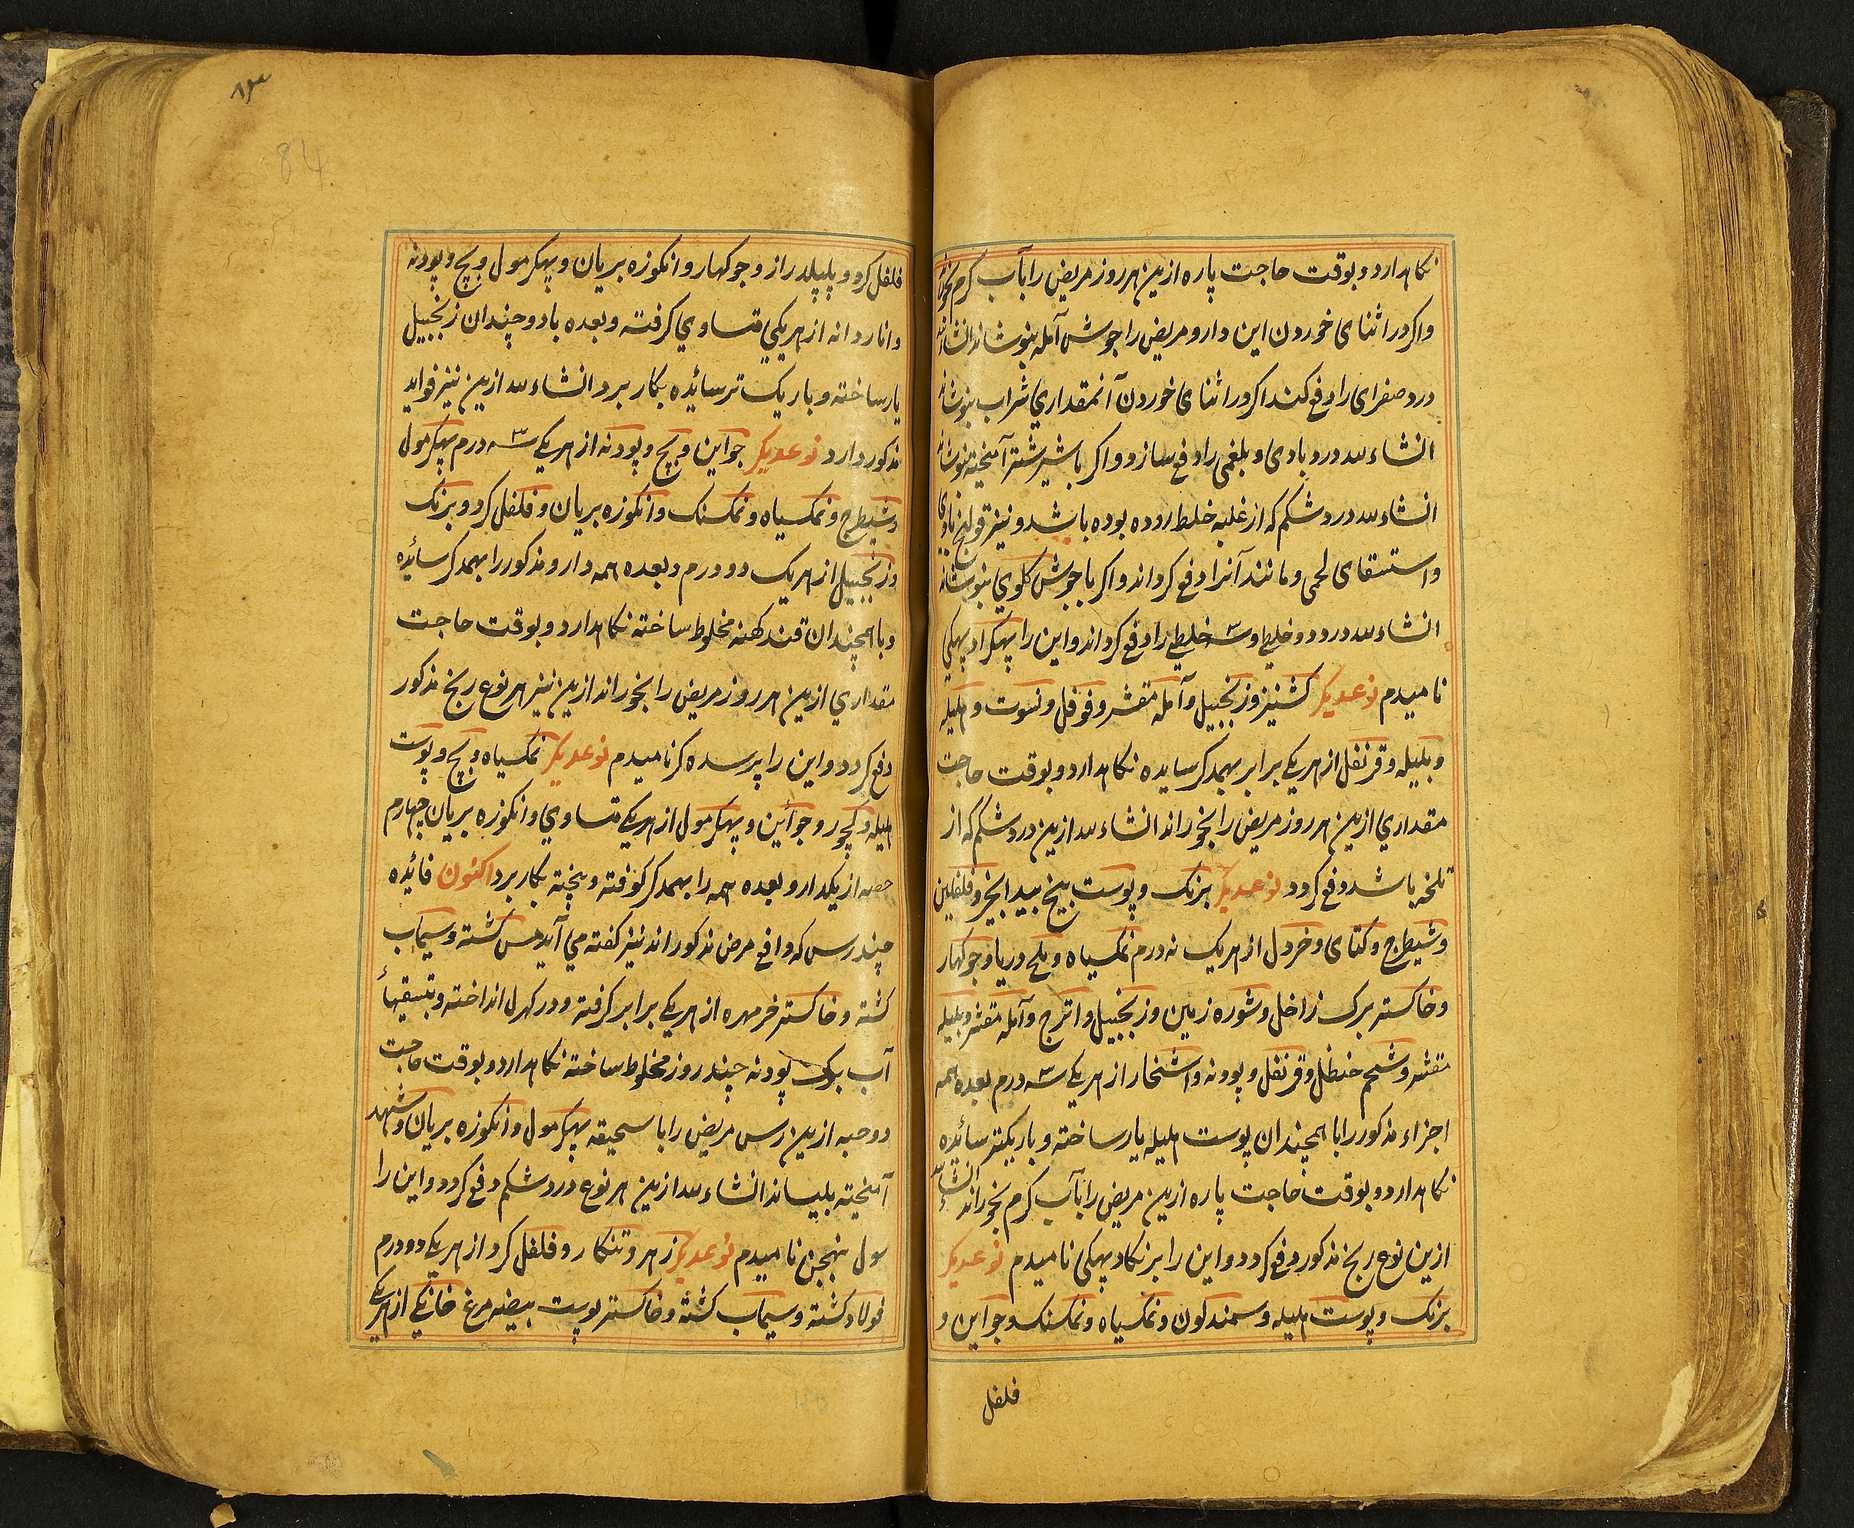 نکاهدارد و بوقت حاجت پاره ازین هر روز مریض را بآب کرم بخوراند
واکر در اثنای خوردن این دارو مریض را جوش آمله بنوشاند انشاء الله
درد صفرای را دفع کند اکر در اثنای خوردن آن مقداری شراب بنوشاند
انشاء لله درد بادی و بلغمی را دفع سازد و اکر با شیر شتر آمیخته بنوشاند
انشاء لله درد شکم که از غلبه خلط روده بوده باشد و نیز قولنج بادی
و استسقای لحمی و مانند آنرا دفع کرداند و اکر با جوش کلوی بنوشاند
انشاء لله درد دو خلطی و سه خلطی را دفع کرداند و این را پهکراد پهکی
نامیدم نوعدیکر کشنیز و زنجبیل و آمله مقشر و فوفل و نسوت و هلیله
و بلیله و قرنفل از هریکی برابر بهمدکر سایده نکاهدارد و بوقت حاجت
مقداری ازین هر روز مریض را بخوراند انشاء لله ازین درد شکم که از
تلخه باشد دفع کردد نوعدیکر برنک و پوست بیخ بیدانجیر و فلفلین
و شیطرج و کتای و خردل از هریک نه درم نمکسیاه و ملح دریا و جوکهار
و خاکستر برک زاخل و شوره زمین و زنجبیل و اترج و آمله مقشر و بلیله
مقشر و شحم حنظل و قرنفل و پودنه و اشخار از هریکی سه درم بعده همه
اجزاء مذکور را با همچندان پوست هلیله یار ساخته و باریکتر سائیده
نکاهدارد و بوقت حاجت پاره ازین مریض را بآب کرم بخوراند انشاء لله
ازین نوع رنج مذکور دفع کردد و این را برنکاد پهکی نامیدم نوعدیکر
برنک و پوست هلیله و سمندکون و نمکسیاه و نمکسنک و جواین و
فلفل
۸۳
84
فلفل کرد و پیپلدراز و جوکهار و انکوزه بریان و پهکرمول و بچ و پودنه
و اناردانه از هریکی متساوی کرفته و بعده با دو چندان زنجبیل
یار ساخته و باریک تر سائیده بکار برد انشاء لله ازین نیز فواید
مذکور دارد نوعدیکر جواین و بچ و پودنه از هریکی سه درم پهکرمول
و شیطرج و نمکسیاه و نمکسنک و انکوزه بریان و فلفل کرد و برنک
و زنجبیل از هریک دو درم و بعده همه دارو مذکور را بهمدکر سائیده
و با همچندان قند کهنه مخلوط ساخته نکاهدارد و بوقت حاجت
مقداری ازین هر روز مریض را بخوراند ازین نیز هر نوع رنج مذکور
دفع کردد و این را پرسده کر نامیدم نوعدیکر نمکسیاه و بچ و پوست
هلیله و کچور و جوائین و پهکرمول از هریکی متساوی و انکوزه بریان چهارم
حصه از یکدارو بعده همه را بهمدکر کوفته و بیخته بکار برد اکنون فائیده
چند رس که دافع مرض مذکوراند نیز کفته می آید مس کشته و سیماب
کشته و خاکستر خرمهره از هریکی برابر کرفته و در کهرل انداخته و بتسقیهاء
آب برک پودنه چند روز مخلوط ساخته نکاهدارد و بوقت حاجت
دو حبه ازین رس مریض را با سحیقه پهکرمول و انکوزه بریان و شهد
آمیخته بلیساند انشاء لله ازین هر نوع درد شکم دفع کردد و این را
سول بهنجن نامیدم نوعدیکر زهر و تنکار و فلفل کرد از هریکی دو درم
فولاد کشته و سیماب کشته و خاکستر پوست بیضه مرغ خانکی از هریکی